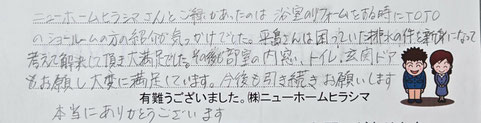 ニューホームヒラシマさんとご縁があったのは浴室のリフォームをする時にTOTO
のショールームの方の紹介が気っかけでした。平島さんは困っていた排水の件を新身になって
考えて解決して頂き大満足でした。その後も部室の内窓、トイレ、玄関ドア
もお願いし大変に満足しています。今後も引き続きお願いします
有難うございました。㈱ニューホームヒラシマ
本当にありがとうございます